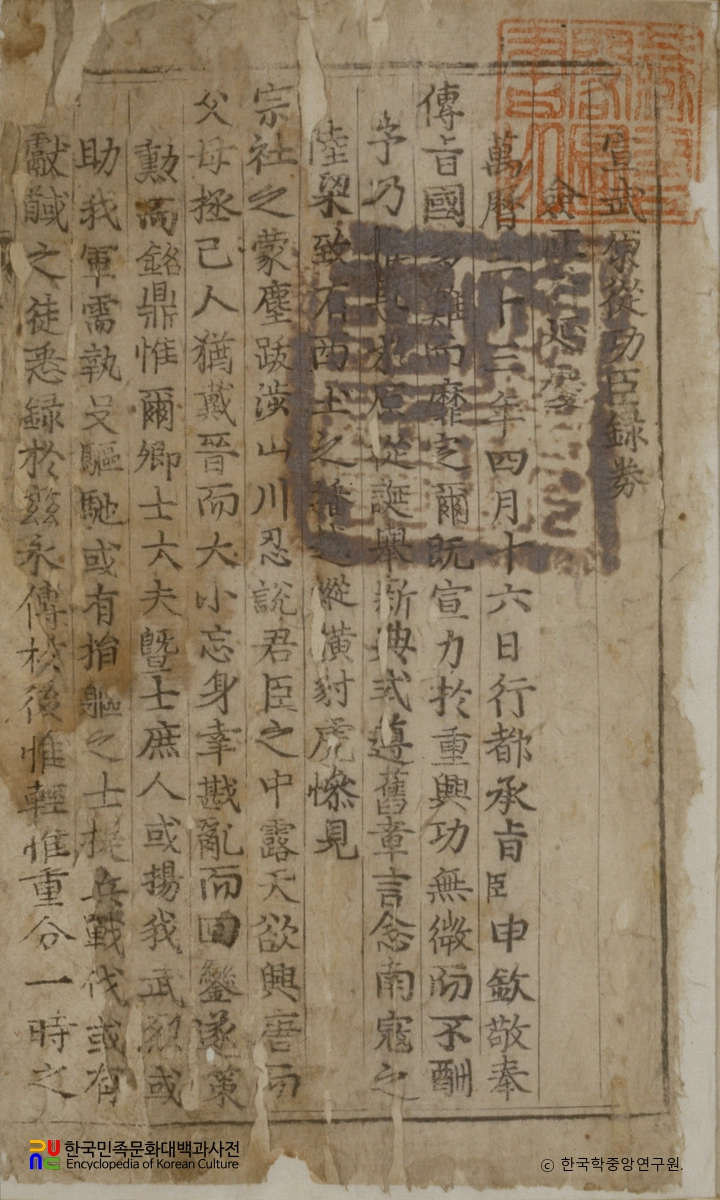 宣武原從功臣錄券
僉正
萬曆三十三年四月十六日行都承旨臣申欽敬奉
傳旨國多難而靡定爾旣宣力於重興功無微而不酬
予乃從誕擧新典式遵舊章言念南寇之
陸梁致有西土之播越縱橫豺虎慘見
宗社之蒙塵跋涉山川忍說君臣之中露天欲興唐而
父母拯己人猶戴晉而大小忘身幸戡亂而回鑾遂策
勳而銘鼎惟爾卿士大夫曁士庶人或揚我武烈或
助我軍需執殳驅馳或有捐軀之士提兵戰伐或有
獻馘之徒悉録於玆永傳於後惟輕惟重分一時之
한국민족문화대백과사전
Encyclopedia of Korean Culture
© 한국학중앙연구원.